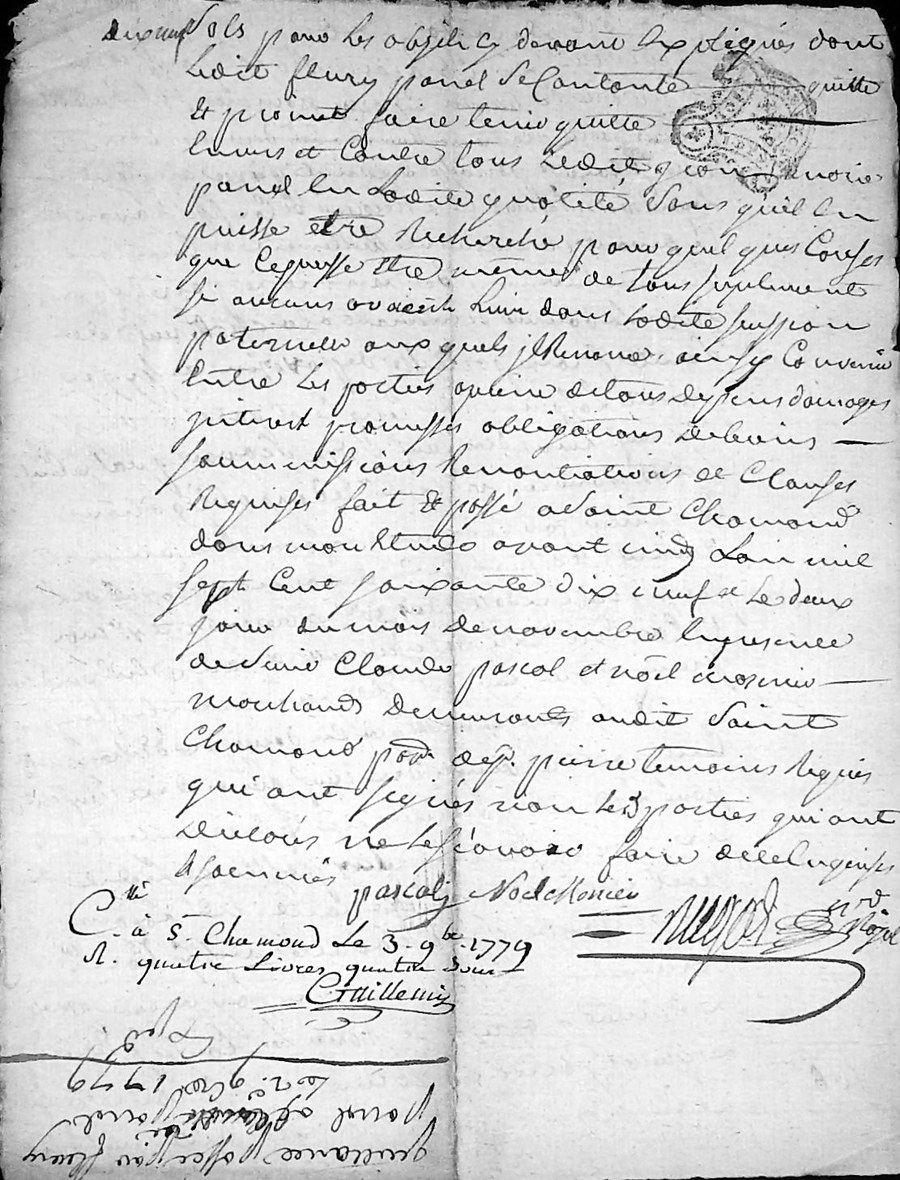 dixneuf sols pour les objets cy devant expliqués dont
ledit fleury panel se contante quitte
et promet faire tenir quitte
envers et contre tous ledit
panel en ladite qualité sans qu'il en
puisse etre recherché pour quelques causes
que ce puisse etre meme de tous suplement
si aucuns avoit lieu dans ladite
paternelle aux quels il renonce ainsy convenu
entre les parties a peine de tous depens domages
interest promesses obligations de biens
soummissions renontiations et clauses
requises fait et passé a Saint Chamond
dans mon etude avant midy L'an mil
sept cent soixante dix neuf et le deux
jour du mois de novembre en presence
de Claude pascal et noël
marchands demeurants audit Saint
Chamond temoins requis
qui ont signés non les parties qui ont
declarés ne le sçavoir faire de ce enquises
& sommés
pascal Noel
C.lé à S. Chamond Le 3. 9bre. 1779
R. quatre Livres quatre sous
Guillemin
quittance passée par fleury
panel a Claude panel
Le 2. 9bre 1779